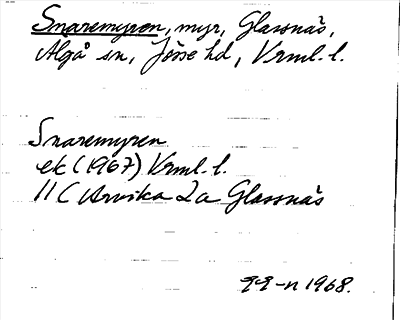 Snaremyren, myr, Glassnäs,
Älgå sn, Jösse hd, Vrml. l.
Snaremyren
ek (1967) Vrml. l.
11C Arvika 2a Glassnäs
1968.